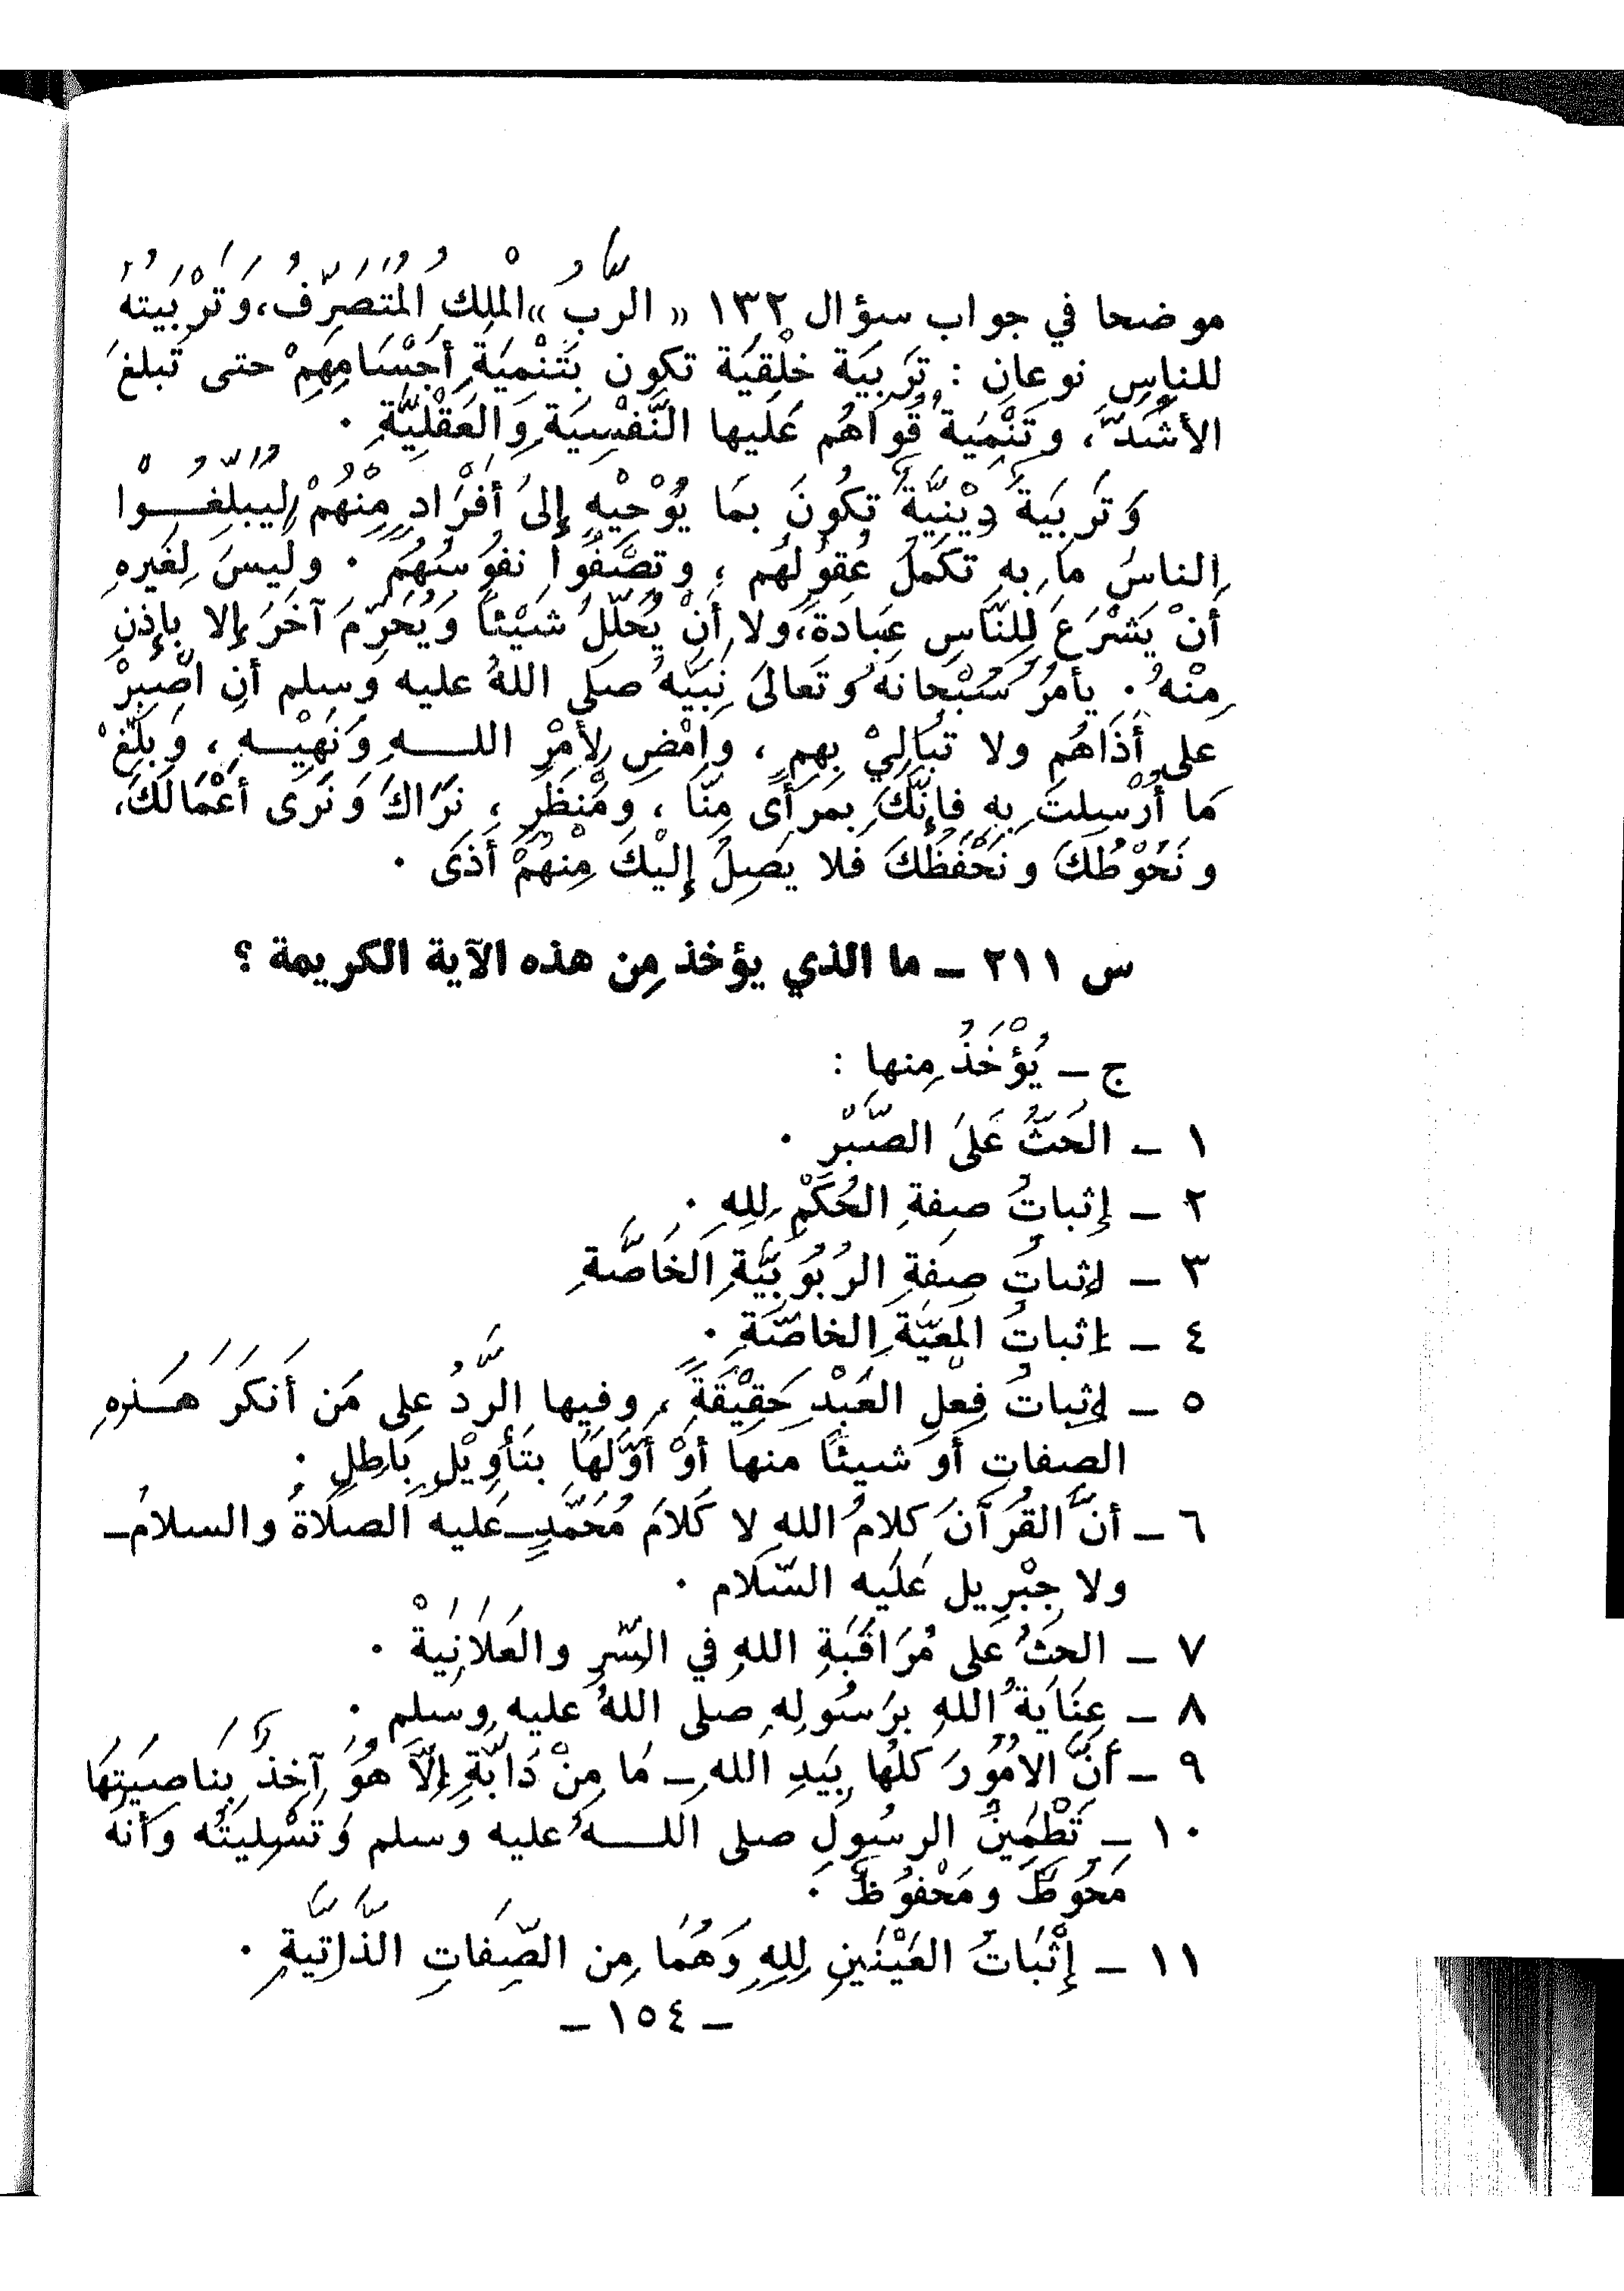 موضحا في جواب سؤال ١٣٢ « الرَّبُّ » المَلِكُ المُتَصَرِّفُ، وَتَرْبِيَتُهُ
للناسِ نوعانِ : تَرْبِيَة خَلْقِيَّة تكون بتَنْمِيَةِ أَجْسَامِهِمْ حتى تَبلغَ
الأَشُدَّ ، وتَنْمِيَةُ قُوَاهُم عَليها النَّفْسِيَةِ وَالعَقْلِيَّةِ .
وَتَرْبِيَةٌ دِيْنِيَّةٌ تَكُونَ بمَا يُوْحِيْهِ إلىَ أَفْرَادٍ مِنْهُمْ لِيُبَلِّغُـــوْا
الناسَ مَا بهِ تَكْمُلُ عُقُولُهُم ؛ وتصْفُوا نفُوسُهُمْ . وليسَ لِغَيرِهِ
أَنْ يَشْرَعَ لِلنَّاسِ عِبَادَةً، ولا أنْ يُحَلّلَ شَيْئاً وَيُحَرّمَ آخَرَ إلا بإِذنٍ
مِنْهُ . يأمرُ سُبْحانَهُ وَتَعالىَ نَبِيَّهُ صلى اللهُ عليه وسلم أنِ اصْبِرْ
على أَذَاهُم ولا تُبَالِيْ بِهم ، وامْضِ لِأَمْرِ اللـــهِ وَنَهْيِـــهِ ، وَبَلّغْ
مَا أُرْسِلتَ بِهِ فإِنَّكَ بمَرْأَى مِنَّا ، ومَنْظَرٍ ، نَرَاكَ وَنَرَى أعْمَالَكَ،
ونَحُوْطُكَ ونَحْفَظُكَ فَلا يَصِلُ إِليْكَ مِنْهُمْ أَذَى .
س ٢١١ ــ ما الذي يؤخذ مِن هذه الآية الكريمة ؟
ج ــ يُؤْخَذُ مِنها :
١ ــ الحَثُّ عَلىَ الصَّبْرِ .
٢ ــ إثباتُ صِفةِ الحُكْمِ لِلهِ .
٣ ــ إثباتُ صِفةِ الرُبُوبِيَّةِ الخَاصَّةِ
٤ ــ إثباتُ المَعِيَّةِ الخاصَّةِ .
٥ ــ إثباتُ فِعلِ العَبْدِ حَقِيْقَةً ، وفيها الرَّدُ على مَن أَنكَرَ هَــذهِ
الصفاتِ أَو شيئاً منها أَوْ أَوَّلَهَا بتَأْوِيْلٍ بَاطِلٍ .
٦ ــ أنَّ القُرْآنَ كلامُ اللهِ لا كَلامَ مُحَمَّدٍ ــ عَليه الصلاةُ والسلامُ ــ
ولا جِبْرِيل عَلَيه السَّلام .
٧ ــ الحثُ عَلى مُرَاقَبَةِ اللهِ في السِّرِ والعَلاَنِيَةْ .
٨ ــ عِنَايَةُ اللهِ برَسُولِهِ صلى اللهُ عليهِ وسلم .
٩ ــ أنَّ الأمُوْرَ كلُّهَا بِيَدِ اللهِ ــ مَا مِنْ دَابَّةٍ إلاَّ هُوَ آخِذٌ بِناصِيَتِهَا
١٠ ــ تَطْمِينُ الرسُولِ صلى اللـــهُ عليه وسلم وَتَسْلِيَتُه وأَنهُ
مَحُوطٌ ومَحْفُوظٌ .
١١ ــ إِثْبَاتُ العَيْنَينِ لِلهِ وَهُمَا مِن الصِّفاتِ الذَّاتِيَّةِ .
ــ ١٥٤ ــ